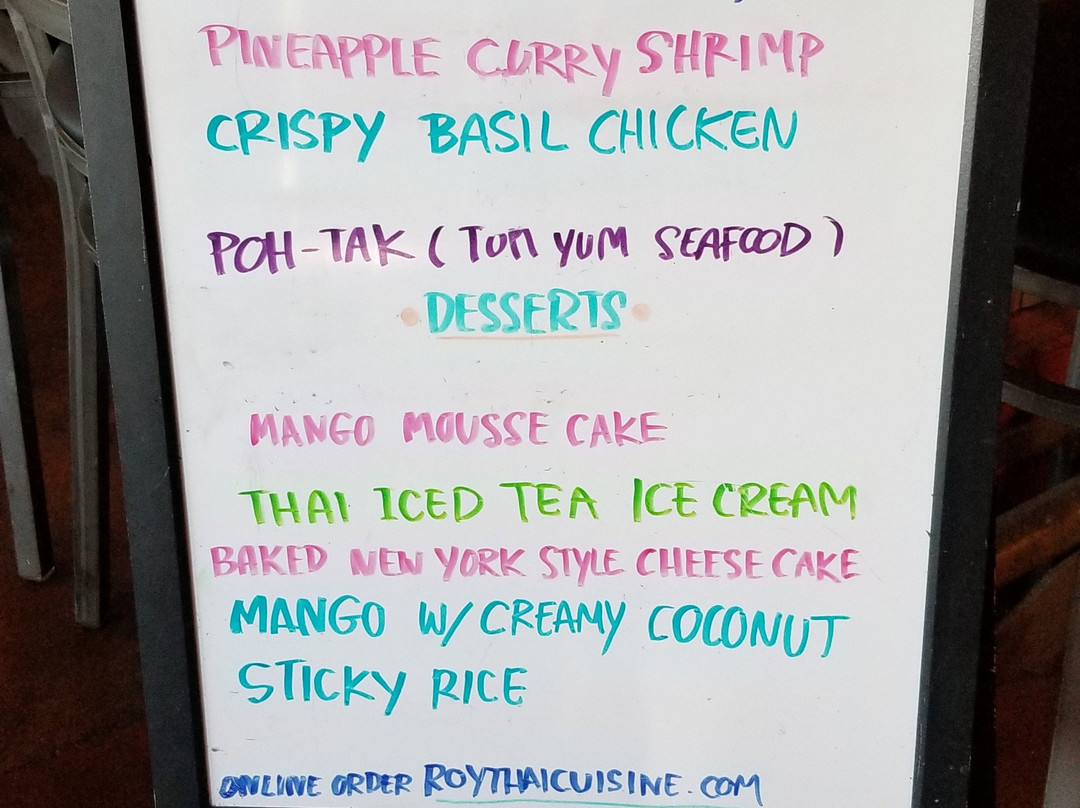 PINEAPPLE CURRY SHRIMP
CRISPY BASIL CHICKEN
POH-TAK (TOM YUM SEAFOOD)
•DESSERTS•
MANGO MOUSSE CAKE
THAI ICED TEA ICE CREAM
BAKED NEW YORK STYLE CHEESE CAKE
MANGO W/ CREAMY COCONUT
STICKY RICE
ONLINE ORDER ROYTHAICUISINE.COM